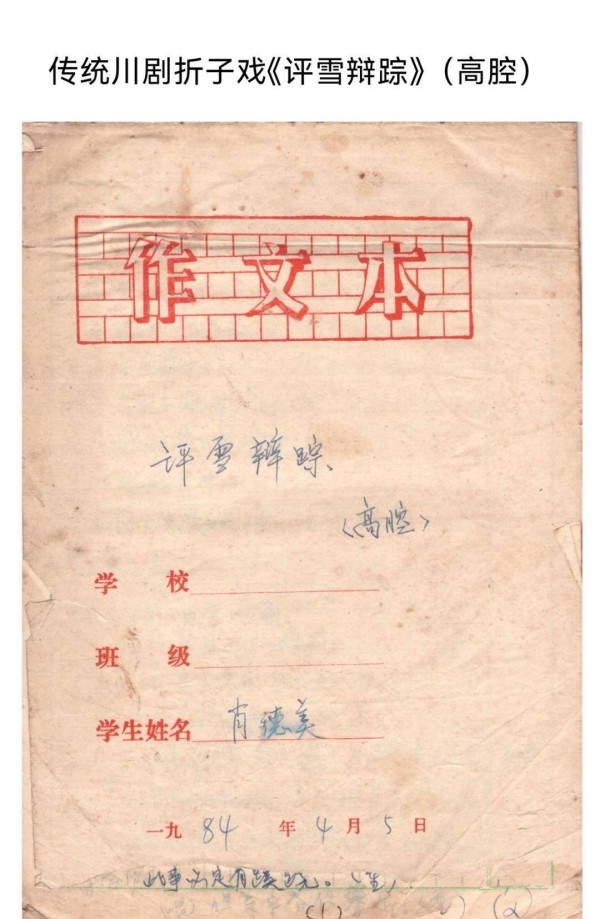 传统川剧折子戏《评雪辩踪》（高腔）
作文本
评雪辩踪
〈高腔〉
学 校
班 级
学生姓名 肖德美
一九84年4月5日
此事必定有蹊跷。（生）
(1) (2)